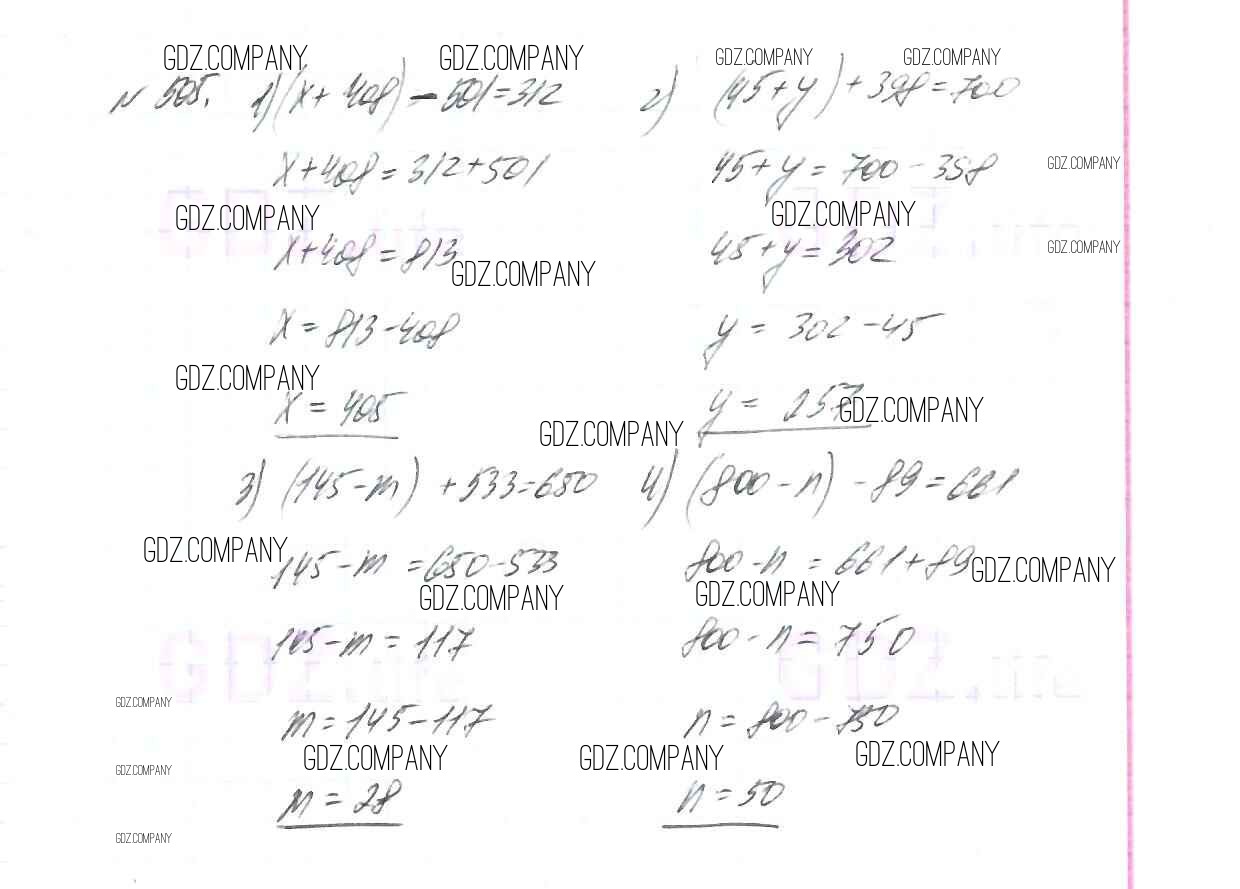 GDZ.COMPANY GDZ.COMPANY GDZ.COMPANY GDZ.COMPANY
№ 505. 1) (x+408) - 501=312
x+408=312+501
GDZ.COMPANY
x+408=813
GDZ.COMPANY
x=813-408
GDZ.COMPANY
x=405
GDZ.COMPANY
2) (45+y)+398=700
45+y=700-398
GDZ.COMPANY
GDZ.COMPANY
45+y=302
GDZ.COMPANY
y=302-45
y=257
GDZ.COMPANY
3) (145-m)+533=650
GDZ.COMPANY
145-m=650-533
GDZ.COMPANY
145-m=117
GDZ.COMPANY
m=145-117
GDZ.COMPANY
GDZ.COMPANY
m=28
GDZ.COMPANY
4) (800-n)-89=661
800-n=661+89
GDZ.COMPANY
GDZ.COMPANY
800-n=750
n=800-750
GDZ.COMPANY GDZ.COMPANY
n=50